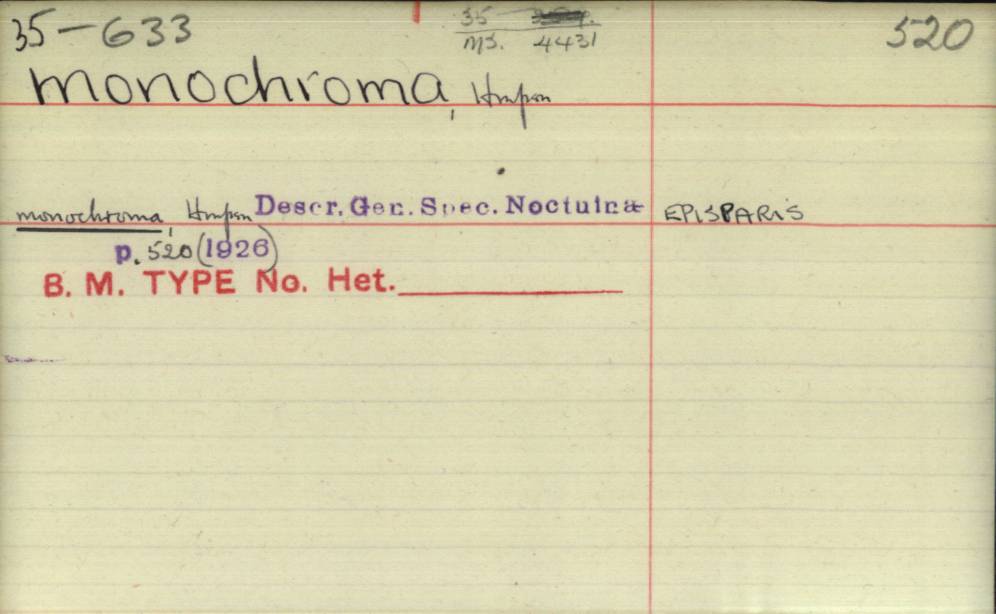 35-633 35 520
MS. 4431
monochroma, Hmpsn
monochroma, Hmpsn Descr. Gen. Spec. Noctuinæ EPISPARIS
p. 520 (1926)
B. M. TYPE No. Het.